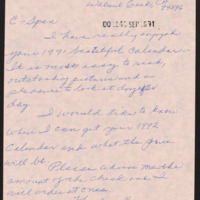 Walnut Creek, Ca
94596
SEP 1991
C-Span
I have really enjoyed
your 1991 beautiful Calendar.
It is most easy to read,
outstanding pictures and a
pleasure to look at days
day.
I would like to know
when I can get your 1992
Calendar and what the price
will be.
Please advise me the
amount of the check and I
will order at once.